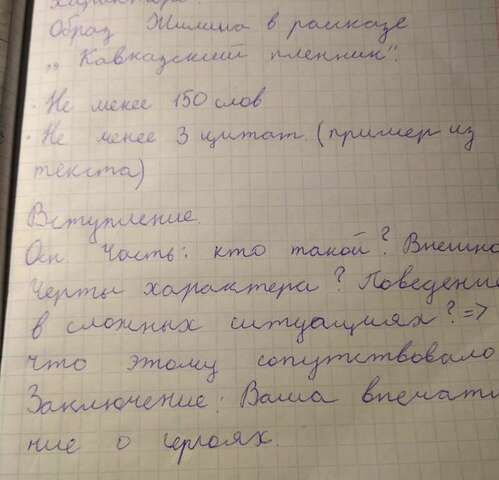 характера.
Образ Жилина в рассказе
„Кавказский пленник".
· Не менее 150 слов
· Не менее 3 цитат (пример из
текста)
Вступление.
Осн. Часть: кто такой? Внешно
Черты характера? Поведение
в сложных ситуациях? =>
что этому сопутствовало
Заключение: Ваша впечатл
ние о героях.